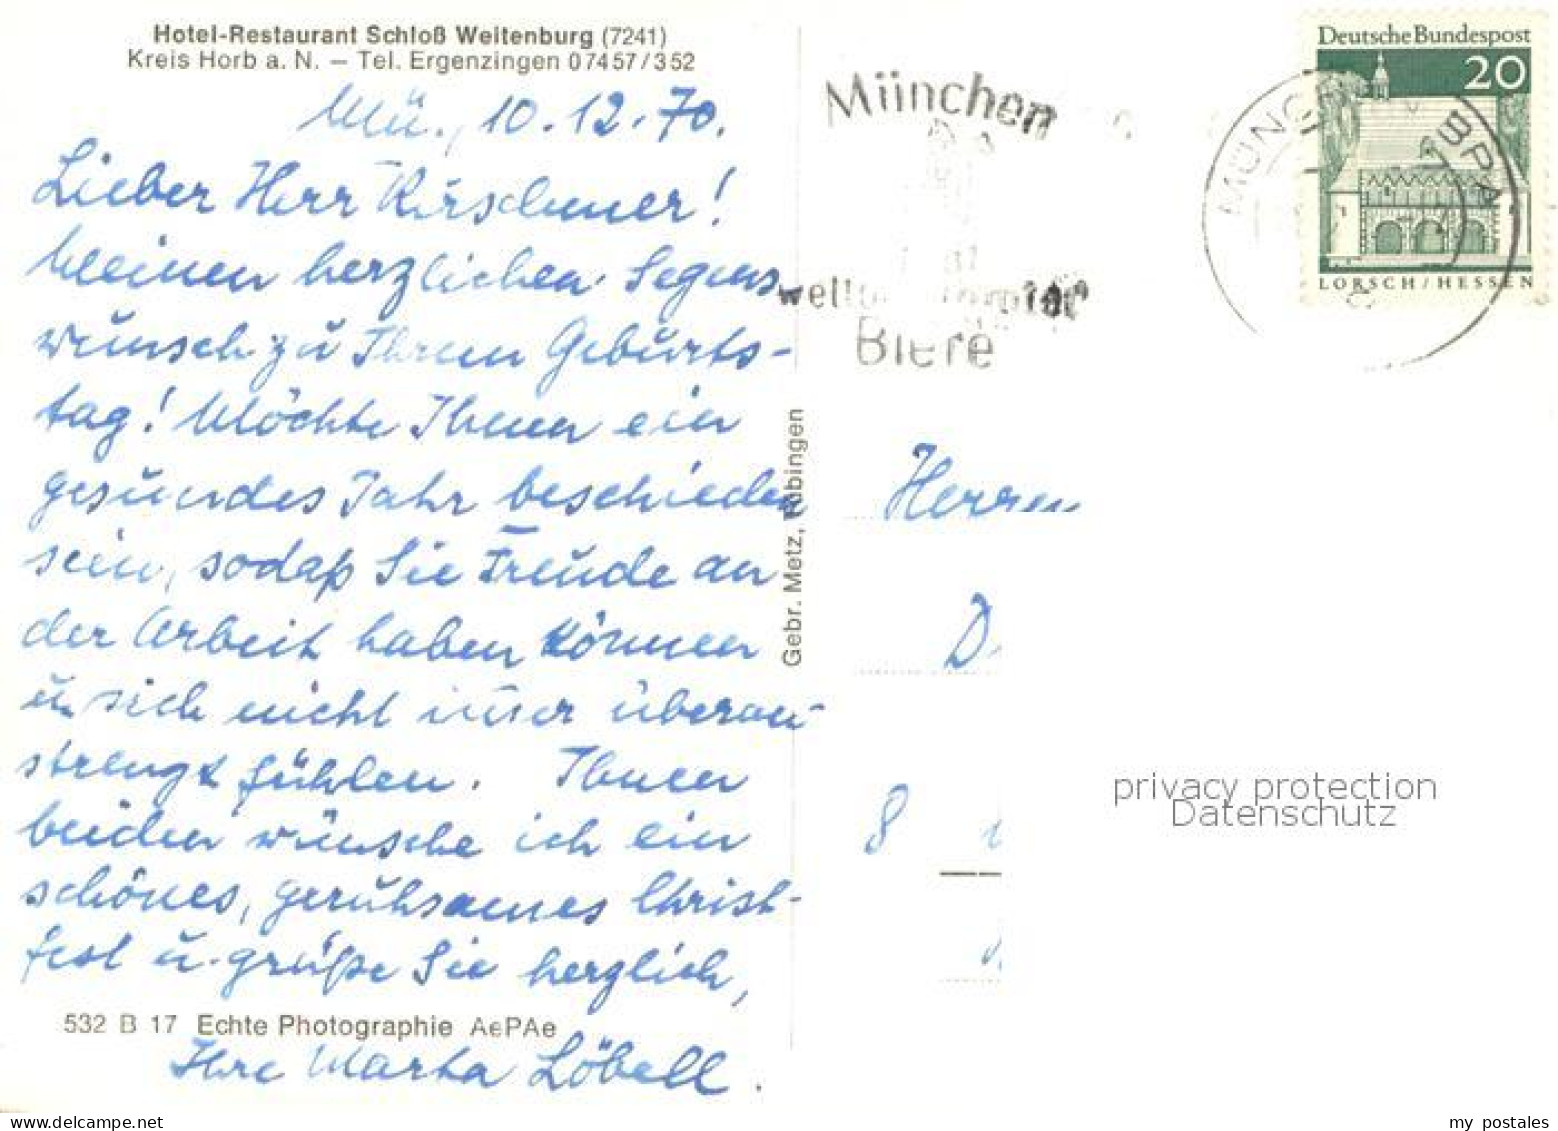 Hotel-Restaurant Schloß Weitenburg (7241)
Kreis Horb a. N. – Tel. Ergenzingen 07457/352
Mü., 10.12.70.
Lieber Herr Kürschner!
Meinen herzlichen Segens-
wunsch zu Ihrem Geburts-
tag! Möchte Ihnen ein
gesundes Jahr beschieden
sein, sodaß Sie Freude an
der Arbeit haben können
u. sich nicht immer überan-
strengt fühlen. Ihnen
beiden wünsche ich ein
schönes, geruhsames Christ-
fest u. grüße Sie herzlich,
532 B 17 Echte Photographie AePAe
Ihre Marta Löbell.
Gebr. Metz, Tübingen
München
Biere
Deutsche Bundespost
20
LORSCH/HESSEN
Herrn
D
8
privacy protection
Datenschutz
my postales